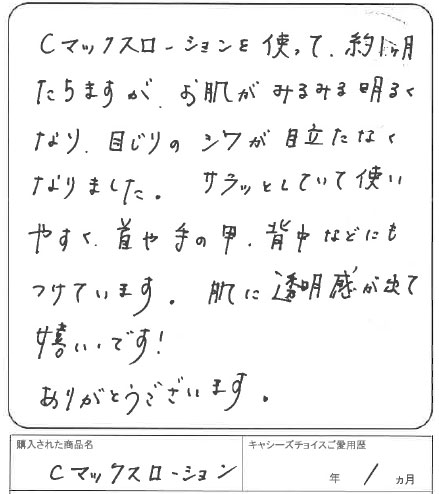 Cマックスローションを使って、約1ヶ月
たちますが、お肌がみるみる明るく
なり、目じりのシワが目立たなく
なりました。 サラッとしていて使い
やすく、首や手の甲、背中などにも
つけています。 肌に透明感が出て
嬉しいです!
ありがとうございます。
購入された商品名
Cマックスローション
キャシーズチョイスご愛用歴
年 1 ヵ月